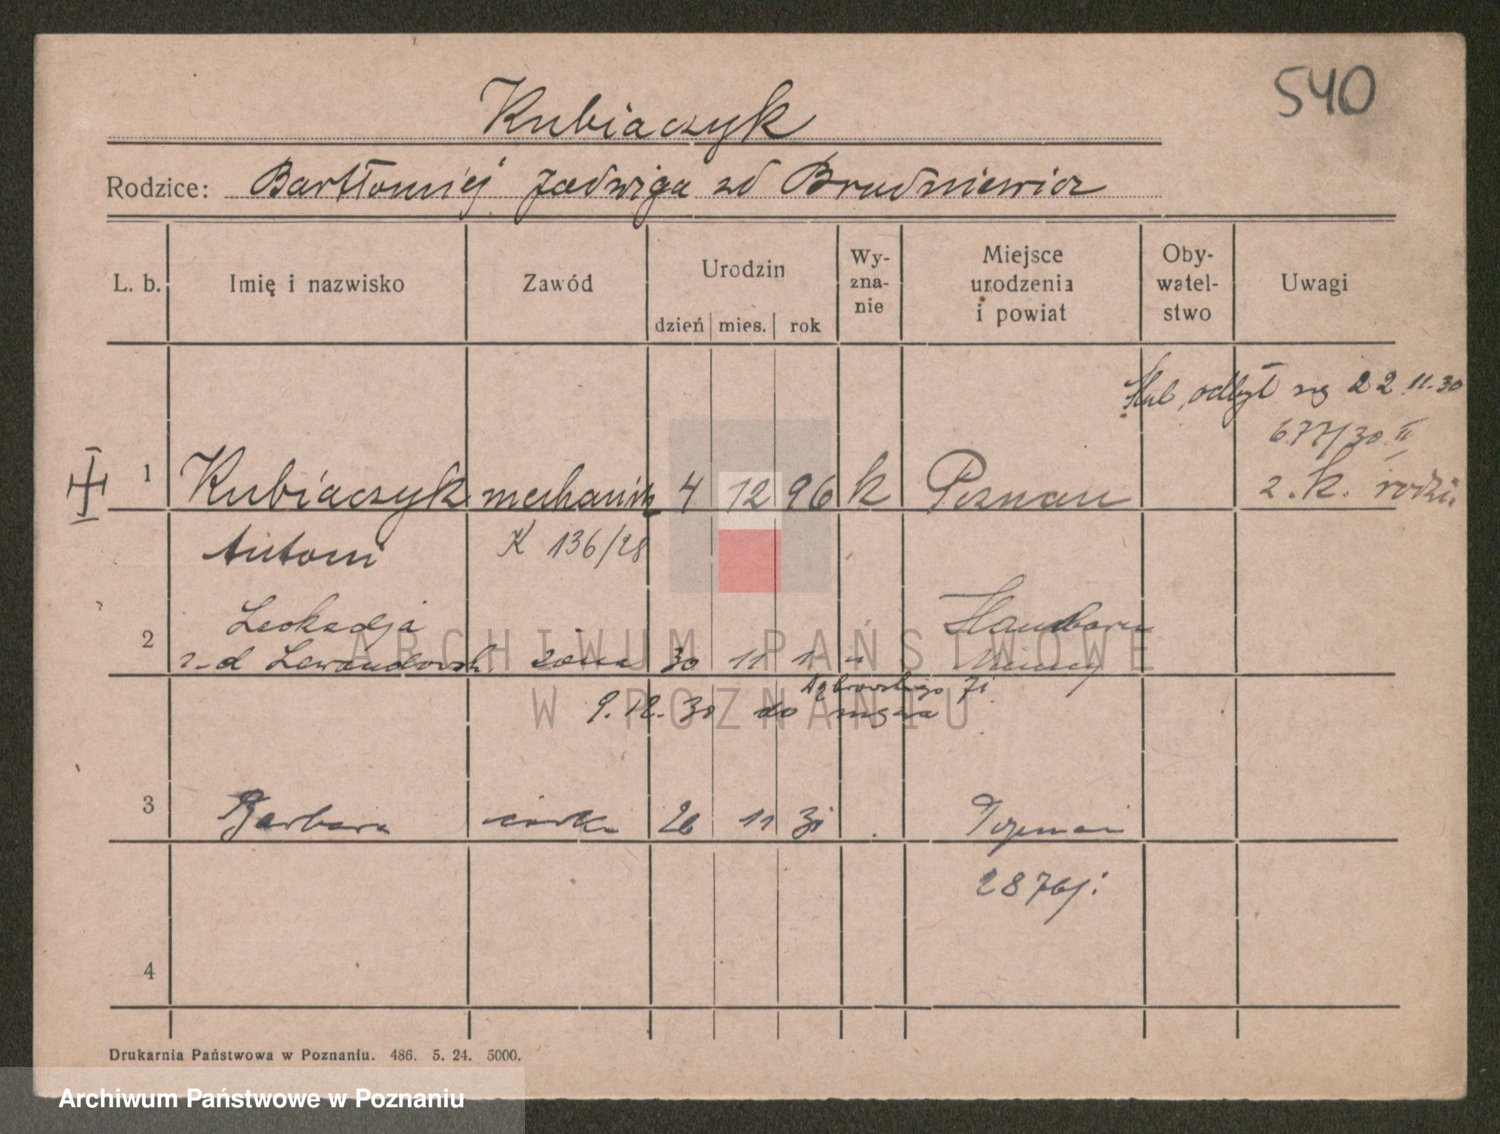 540
Kubiaczyk
Rodzice: Bartłomiej Jadwiga zd Brudniewicz
L. b. Imię i nazwisko Zawód Urodzin Wy-zna-nie Miejsce urodzenia i powiat Oby-watel-stwo Uwagi
dzień mies. rok
odbył się 22 11.30
677/30 II
1 Kubiaczyk mechanik 4 12 96 k Poznań z. k. rodzi.
Antoni K 136/28
2 Leokadja
z d Lewandowsk żona 30 11 1
ARCHIWUM PAŃSTWOWE
W POZNANIU
Dąbrowskiego 71
9.12.30 do męża
3 Barbara córka 26 11 31 Poznań
2876j.
4
Drukarnia Państwowa w Poznaniu. 486. 5. 24. 5000.
Archiwum Państwowe w Poznaniu